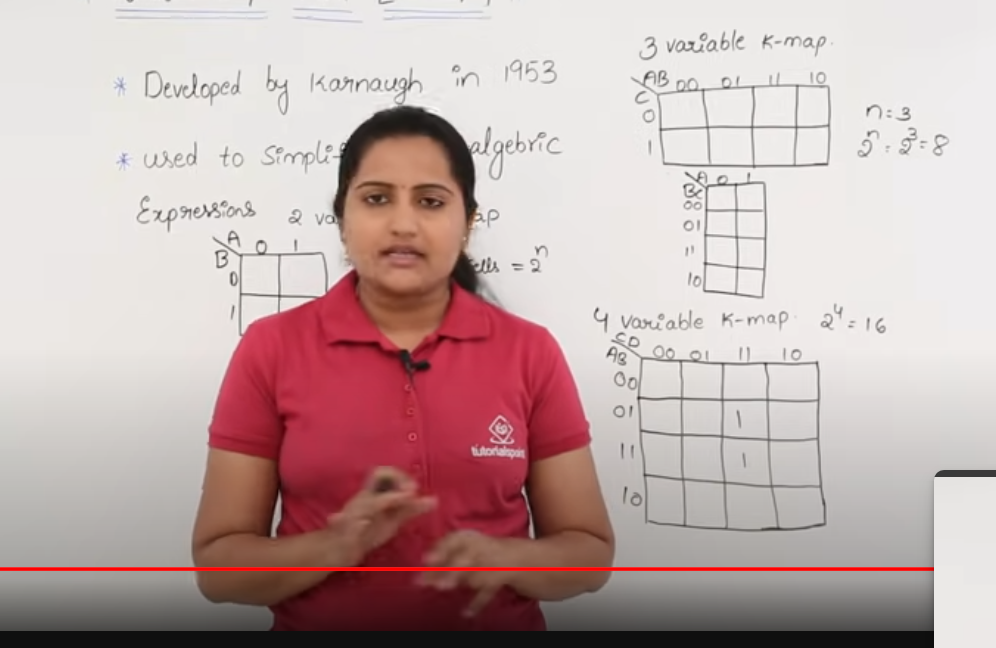 * Developed by Karnaugh in 1953
* used to Simpli algebric
Expressions 2 va ap
A 0 1
B
0
1
= 2^n
3 variable K-map.
AB 00 01 11 10
C
0
1
n=3
2^n = 2^3 = 8
A 0 1
BC
00
01
11
10
4 variable K-map. 2^4 = 16
CD 00 01 11 10
AB
00
01 1
11 1
10
tutorialspoint